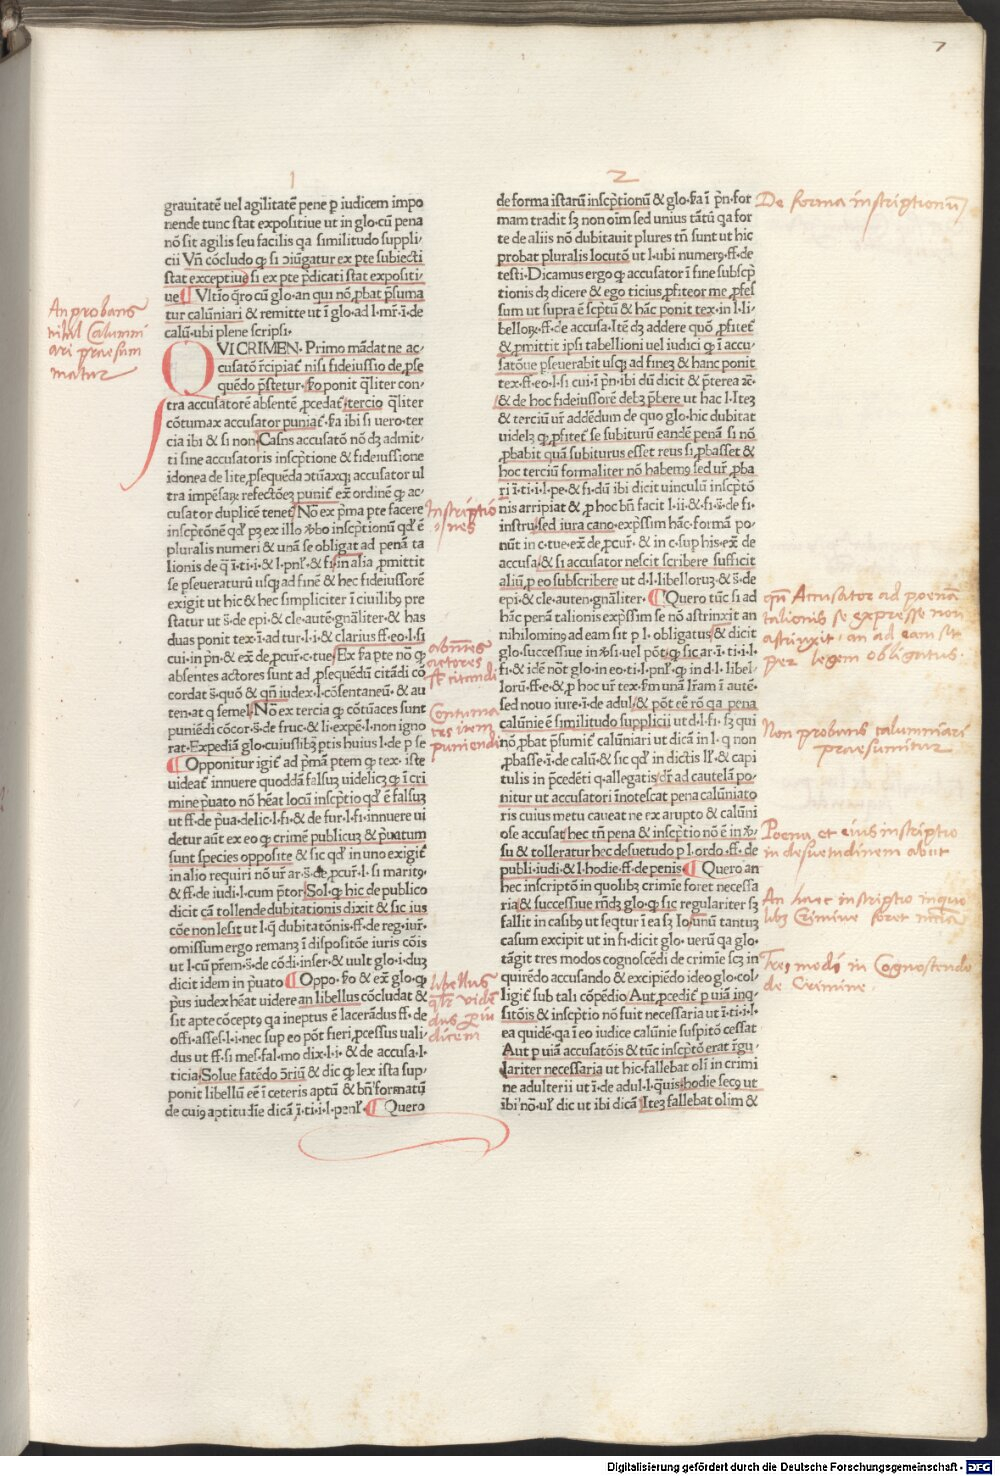 7
1
grauitatē uel agilitatē pene ꝑ iudicem impo
nende tunc stat expositiue ut in glo·cū pena
nō sit agilis seu facilis qa similitudo suppli/
cii Vn̄ cōcludo ꝙ si ɔiūgatur ex pte subiecti
stat exceptiue si ex pte p̄dicati stat expositi/
ue Vltīo q̄ro cū glo·an qui nō ꝓbat p̄suma
tur calūniari & remitte ut ī glo·ad l·mr̄·ī·de
calū·ubi plene scripsi·
An probans
nihil Calumni
ari praesum
matur
QVI CRIMEN· Primo mādat ne ac/
cusatō r̄cipiat᷑ nisi fideiussio de ꝓse
quēdo p̄stetur· ẜo ponit q̄liter con/
tra accusatorē absentē ꝓcedat᷑ tercio q̄liter
cōtumax accusator puniat᷑·ẜa ibi si uero·ter
cia ibi & si non· Casus accusatō nō dꝫ admit/
ti sine accusatoris inscp̄tione & fideiussione
idonea de lite ꝓsequēda ɔtūaxqꝫ accusator ul
tra impēsaꝝ refectōeꝫ punit᷑ ex̄ ordinē ꝙ ac/
cusator duplicē tenet᷑ No ex p̄ma pte facere
inscp̄tōnē qd᷑ pꝫ ex illo ꝟbo inscp̄tionū qd᷑ ē
pluralis numeri & unā se obligat ad penā ta
lionis de q̄ ī·ti·i·& l·pnl᷑·& fi·in alia ꝓmittit
se ꝑseueraturū usqꝫ ad finē & hec fideiussorē
exigit ut hic & hec simpliciter ī ciuilibꝰ pre
statur ut s̄·de epi·& cle·autē·gn̄aliter·& has
duas ponit tex·ī·ad tur·l·i·& clarius ff·eo·l·si
cui·in pn̄·& ex̄ de·ꝓcur᷑·c·tue Ex ẜa pte nō ꝙ
absentes actores sunt ad ꝓsequēdū citādi cō
cordat s̄·quō & qn̄ iudex·l·cōsentaneū·& au
ten·at q semel No ex tercia ꝙ cōtūaces sunt
puniēdi cōcor·s̄·de fruc·& li·expē·l·non igno
rat·Expediā glo·cuiuslibꝫ ptis huius l·de ꝑ se
Opponitur igit᷑ ad p̄mā ptem ꝙ tex· iste
uideat᷑ innuere quoddā falsuꝫ uidelicꝫ ꝙ ī cri
mine p̄uato nō hēat locū inscp̄tio qd᷑ ē falsuꝫ
ut ff·de p̄ua·delic·l·fi·& de fur·l·fi·innuere ui
detur aūt ex eo ꝙ crimē publicuꝫ & p̄uatum
sunt species opposite & sic qd᷑ in uno exigit᷑
in alio requiri nō ur᷑ ar·s̄·de·ꝓcur᷑·l·si maritꝰ
& ff·de iudi·l·cum p̄tor Sol·ꝙ hic de publico
dicit cā tollende dubitationis dixit & sic ius
cōe non lesit ut l·q̄ dubitatōnis·ff·de reg·iur᷑·
omissum ergo remanꝫ ī dispositōe iuris cōis
ut l·cū pr̄em·s̄·de cōdi·inser·& uult glo·i·duꝫ
dicit idem in p̄uato Oppo·ẜo & ex̄ glo·ꝙ
p̄us iudex hēat uidere an libellus cōcludat &
sit apte cōceptꝰ qa ineptus ē lacerādus ff·de
offi·asses·l·i·nec sup eo pōt fieri ꝓcessus uali/
dus ut ff·si mes·fal·mo dix·l·i·& de accusa·l·
ticia Solue fatēdo ɔ̄riū & dic ꝙ lex ista sup/
ponit libellū eē ī ceteris aptū & bn̄ formatū
de cuiꝰ aptitudīe dicā ī·ti·i·l·penl᷑· Quero
Inscriptio
nes
absentes
actores
st citandi
Contuma
ces item
puniendi
libellus
qͥlr̄ viden
dus ꝑ iu
dicem
2
de forma istarū inscp̄tionū & glo·ẜa ī pn̄·for
mam tradit sꝫ non oīm sed unius tātū qa for
te de aliis nō dubitauit plures tn̄ sunt ut hic
probat pluralis locutō ut l·ubi numerꝰ·ff·de
testi·Dicamus ergo ꝙ accusator ī fine subscp̄
tionis dꝫ dicere & ego ticius ꝓfiteor me ꝓfes
sum ut supra ē scp̄tū & hāc ponit tex·in l·li/
belloꝝ·ff·de accusa·Itē dꝫ addere quō ꝓfitet᷑
& ꝓmittit ipsi tabellioni uel iudici ꝙ ī accu/
satōue ꝑseuerabit usqꝫ ad fineꝫ & hanc ponit
tex·ff·eo·l·si cui·ī pn̄·ibi dū dicit & p̄terea ꝛc̄·
& de hoc fideiussorē debꝫ p̄bere ut hac l·Iteꝫ
& terciū ur᷑ addēdum de quo glo·hic dubitat
uidelꝫ ꝙ ꝓfitet᷑ se subiturū eandē penā si nō
ꝓbabit quā subiturus esset reus si ꝓbasset &
hoc terciū formaliter nō habemꝰ sed ur᷑ ꝓba
ri ī·ti·i·l·pe·& fi·dū ibi dicit uinculū inscp̄tō
nis arripiat & ꝓ hoc bn̄ facit l·ii·& fi·s̄·de fi·
instru·sed iura cano·exp̄ssim hāc formā po/
nūt in c·tue·ex̄ de ꝓcur᷑·& in c·sup his·ex̄ de
accusa & si accusator nescit scribere sufficit
aliū ꝓ eo subscribere ut d·l·libelloruꝫ·& s̄·de
epi·& cle·auten·gn̄aliter· Quero tūc si ad
hāc penā talionis exp̄ssim se nō astrinxit an
nihilomiꝰ ad eam sit ꝑ l·obligatus & dicit
glo·successiue in ꝟsi·uel pōt ꝙ sic ar·ī·ti·i·l·
fi·& idē nōt glo·in eo·ti·l·pnl᷑·ꝙ in d·l·libel/
lorū·ff·e·& ꝑ hoc ur᷑ tex·ẜm unā lr̄am ī autē·
sed nouo iure·ī·de adul & pōt eē rō qa pena
calūnie ē similitudo supplicii ut d·l·fi·sꝫ qui
nō ꝓbat p̄sumit᷑ calūniari ut dicā in l·q non
ꝓbasse·ī·de calū·& sic qd᷑ in dictis ll᷑·& capi
tulis in p̄cedēti q·allegatis dr̄ ad cautelā po/
nitur ut accusatori īnotescat pena calūniato
ris cuius metu caueat ne ex arupto & calūni
ose accusat hec tn̄ pena & inscp̄tio nō ē in ꝟ/
su & tolleratur hec desuetudo ꝑ l·ordo·ff·de
publi·iudi·& l·hodie·ff·de penis Quero an
hec inscriptō in quolibꝫ crimīe foret necessa
ria & successiue rn̄dꝫ glo·ꝙ sic regulariter sꝫ
fallit in casibꝰ ut seqtur ī ea sꝫ lo unū tantuꝫ
casum excipit ut in fi·dicit glo· uerū qa glo·
tāgit tres modos cognoscēdi de crimīe scꝫ in
quirēdo accusando & excipiēdo ideo glo·col/
ligit᷑ sub tali cōpēdio Aut ꝓcedit᷑ ꝑ uiā inq/
sitōis & inscp̄tio nō fuit necessaria ut ī·ti·i·l·
ea quidē·qa ī eo iudice calūnie suspitō cessat
Aut ꝑ uiā accusatōis & tūc inscp̄tō erat r̄gu/
lariter necessaria ut hic·fallebat oli in crimi
ne adulterii ut ī·de adul·l·q̄uis hodie secꝰ ut
ibi nō·ul᷑ dic ut ibi dicā Iteꝫ fallebat olim &
De forma inscriptionū
qn̄ Accusator ad poenā
talionis se expresse non
astrinxit·an ad eam sit
per legem obligatus·
Non probans calumniari
praesumitur
Poena et eius inscriptio
in desuetudinem abut
An haec inscriptio in quo
libꝫ Crimine foret necessa
Tres modi in Cognoscendo
de Crimine·
Digitalisierung gefördert durch die Deutsche Forschungsgemeinschaft - DFG